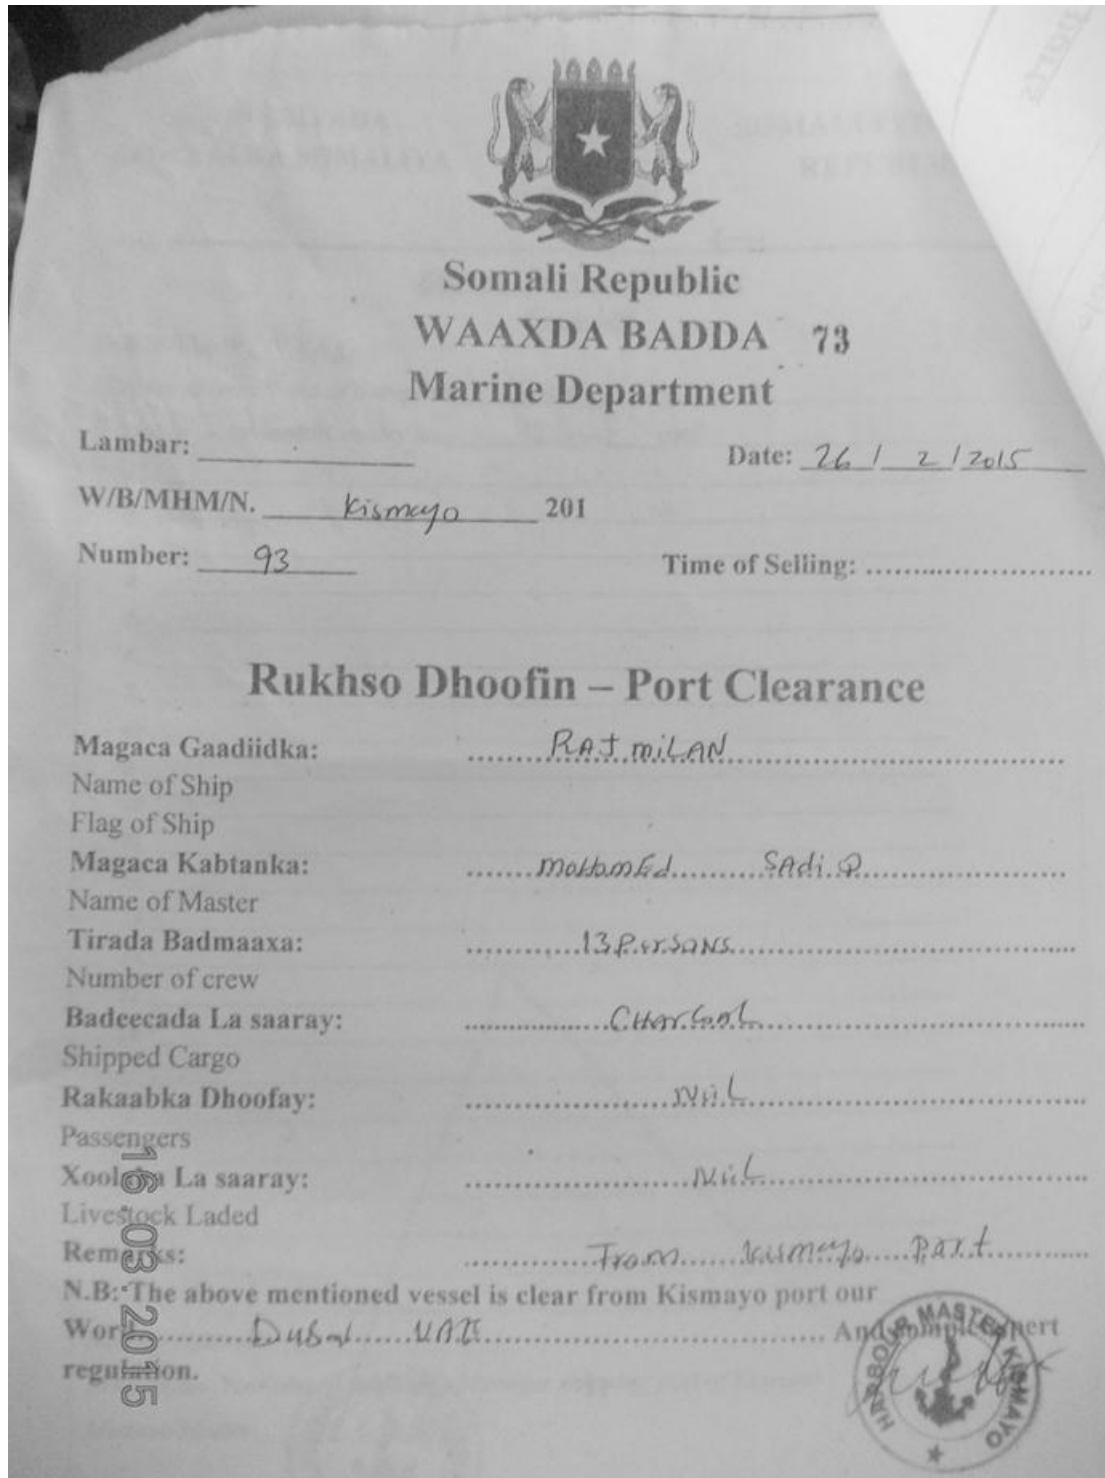 Somali Republic
WAAXDA BADDA 73
Marine Department
Lambar:
Date: 26 / 2 / 2015
W/B/MHM/N. Kismayo 201
Number: 93
Time of Selling:
Rukhso Dhoofin – Port Clearance
Magaca Gaadiidka: RAJ MILAN
Name of Ship
Flag of Ship
Magaca Kabtanka: MOHAMED SADIQ
Name of Master
Tirada Badmaaxa: 13 PERSONS
Number of crew
Badeecada La saaray: CHARCOAL
Shipped Cargo
Rakaabka Dhoofay: NiiL
Passengers
Xoolaha La saaray: NiiL
Livestock Laded
Remarks: From Kismayo Port
N.B: The above mentioned vessel is clear from Kismayo port our
Work Dubai UAE And pert
regulation.
HARBOUR MASTER KISMAYO
16.03.2015